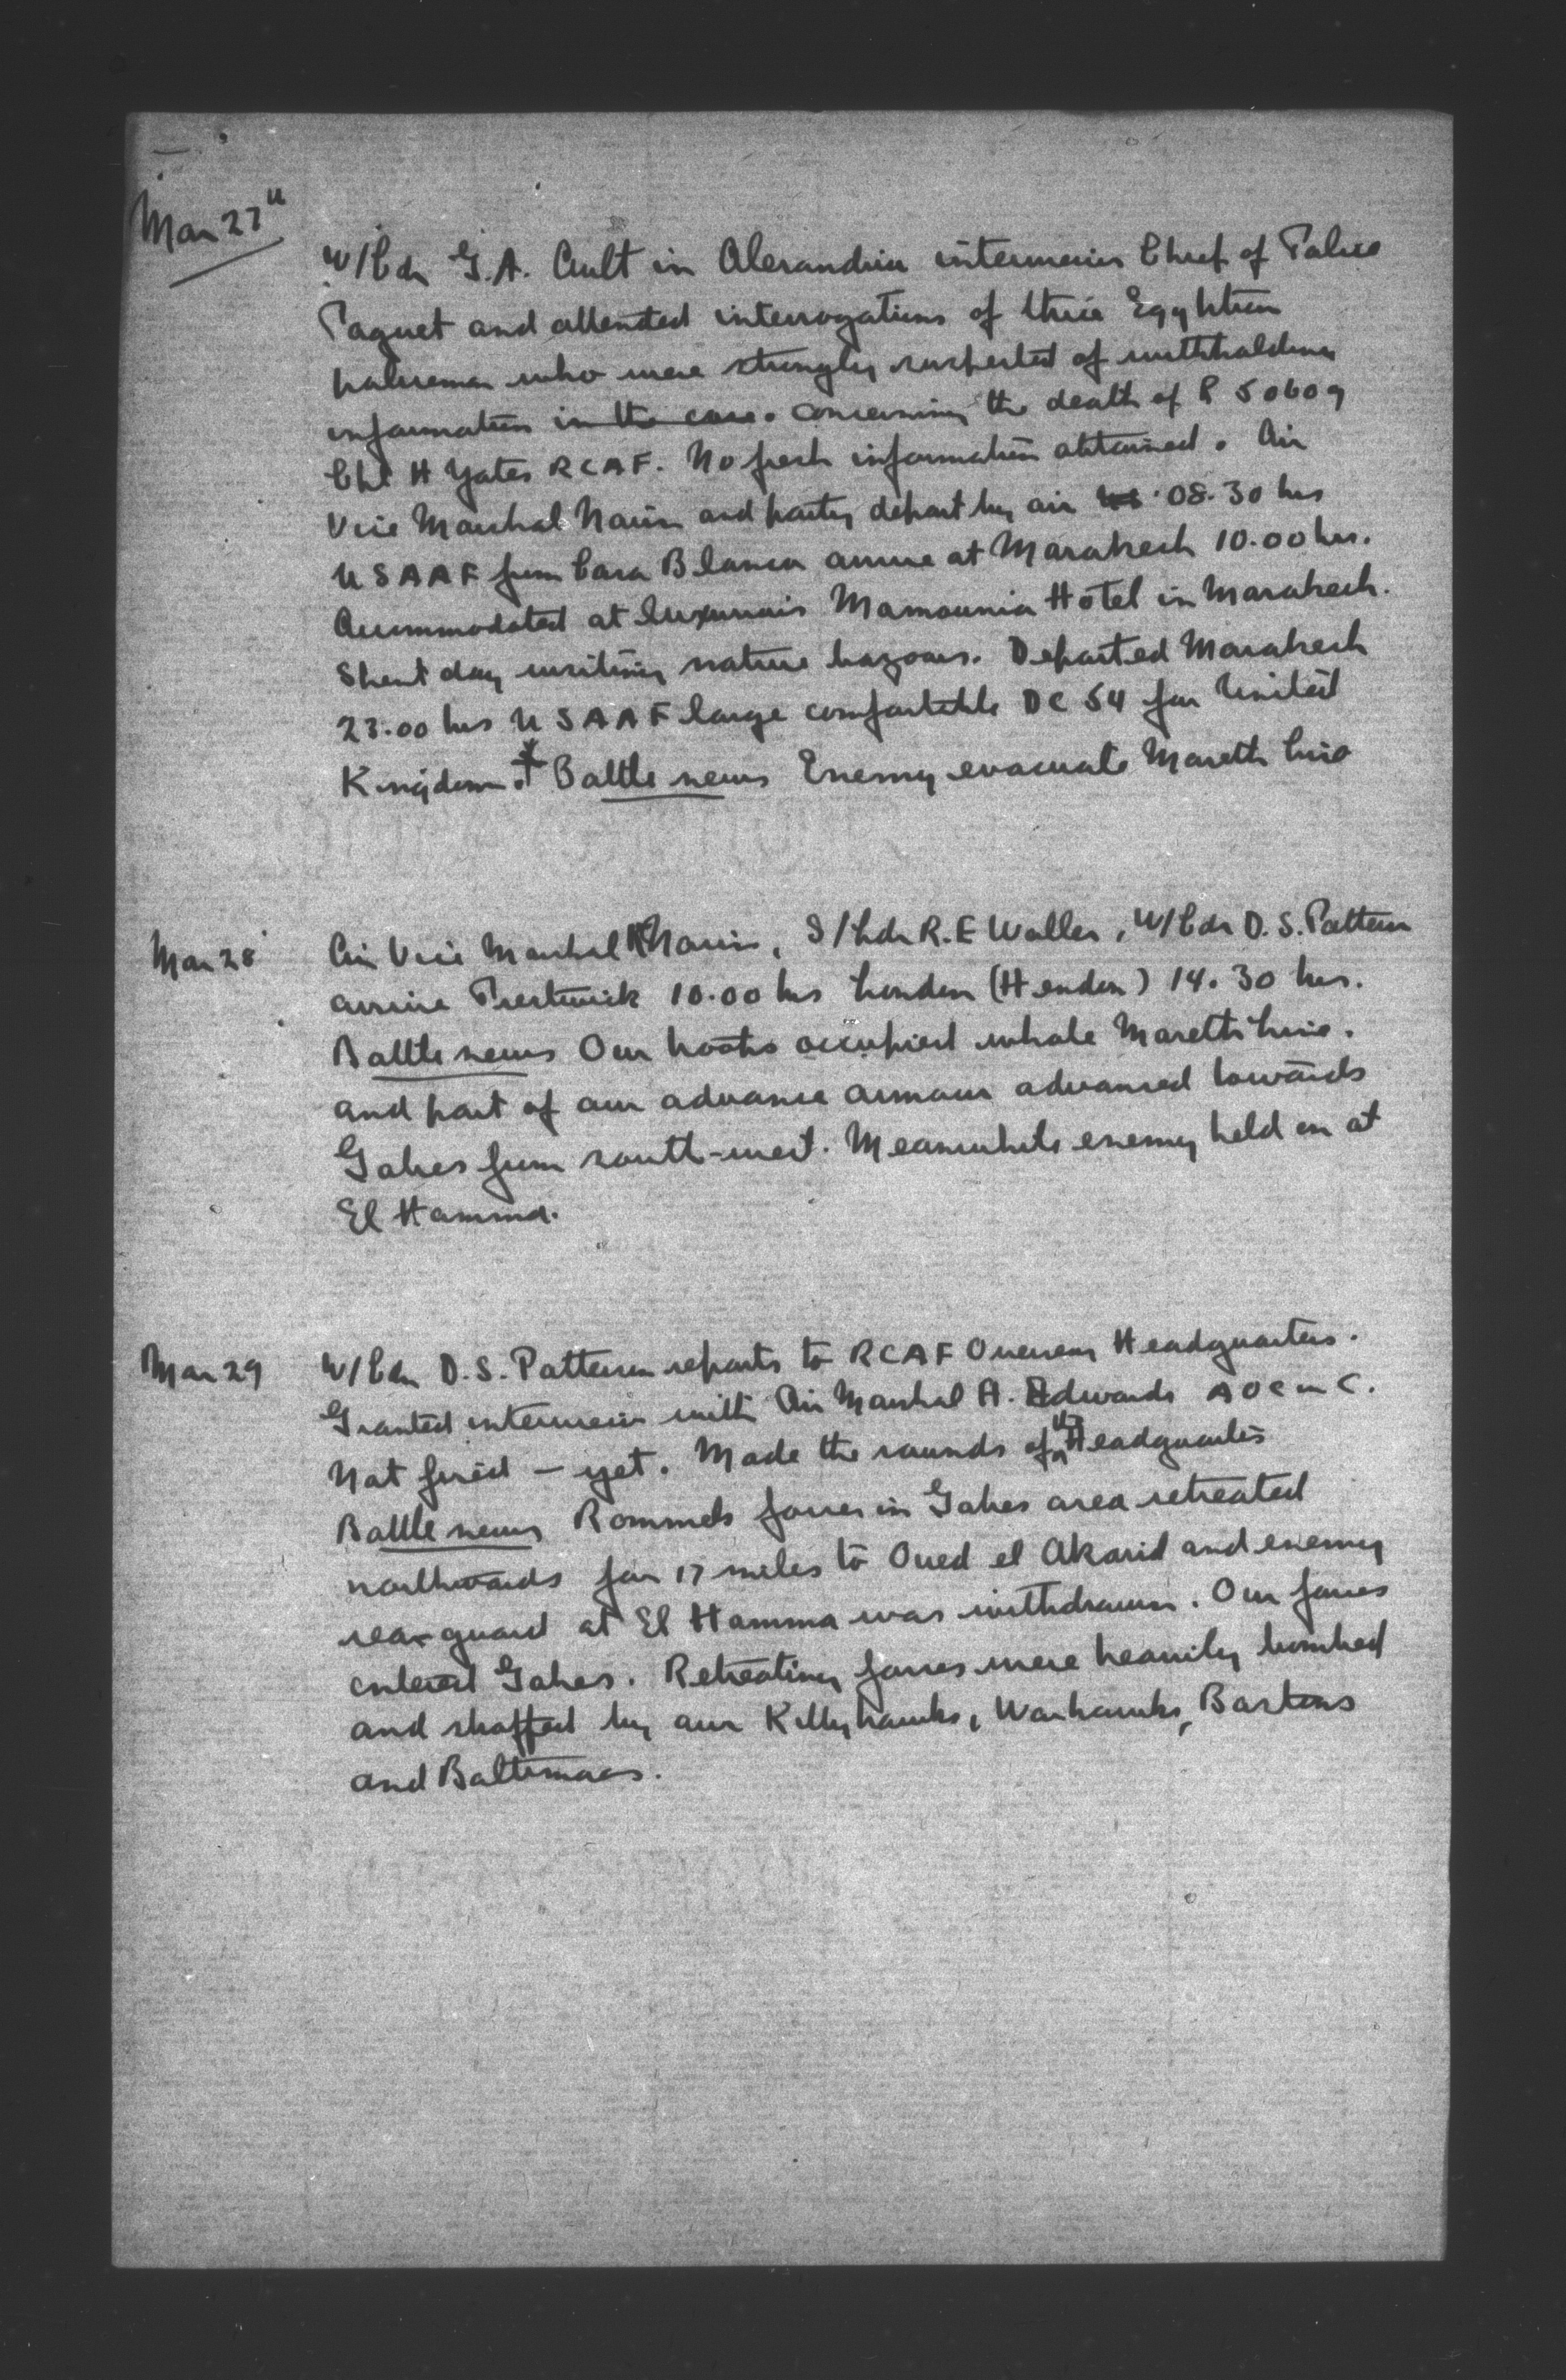 Mar 27th
W/Cdr G.A. Ault in Alexandria interviews Chief of Police
Paguet and attended interrogations of three Egyptian
policemen who were strongly suspected of withholding
information in the case. concerning the death of R 50609
Cpl H Yates RCAF. No fresh information obtained. Air
Vice Marshal and party depart by air 08.30 hrs
USAAF from Casa Blanca arrive at Marakech 10.00 hrs.
Accommodated at luxurious Mamounia Hotel in Marakech.
Spent day visiting native bazaars. Departed Marakech
23.00 hrs USAAF large comfortable DC 54 for United
Kingdom. Battle news Enemy evacuate Mareth line
Mar 28
Air Vice Marshal S/Ldr R.E Waller, W/Cdr D.S. Patterson
arrive Prestwick 10.00 hrs London (Hendon) 14.30 hrs.
Battle news Our troops occupied whole Mareth line.
and part of our advance armour advanced towards
Gabes from south-west. Meanwhile enemy held on at
El Hamma.
Mar 29
W/Cdr D.S. Patterson reports to RCAF Overseas Headquarters.
Granted interview with Air Marshal H. Edwards AOC in C.
Not fired – yet. Made the rounds of the Headquarters
Battle news Rommels forces in Gabes area retreated
northwards for 17 miles to Oued el Akarit and enemy
rear guard at El Hamma was withdrawn. Our forces
entered Gabes. Retreating forces were heavily bombed
and straffed by our Kittyhawks, Warhawks, Bostons
and Baltimores.